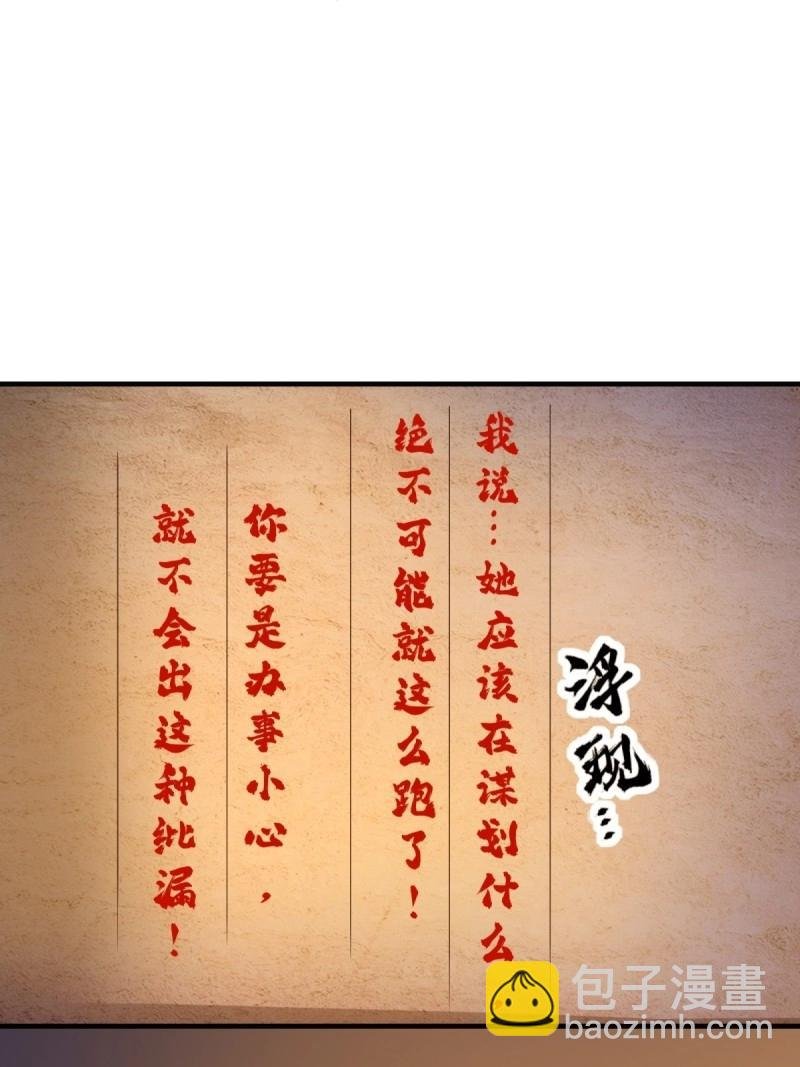 浮现…
我说…她应该在谋划什么
绝不可能就这么跑了！
你要是办事小心，
就不会出这种纰漏！
包子漫畫
baozimh.com